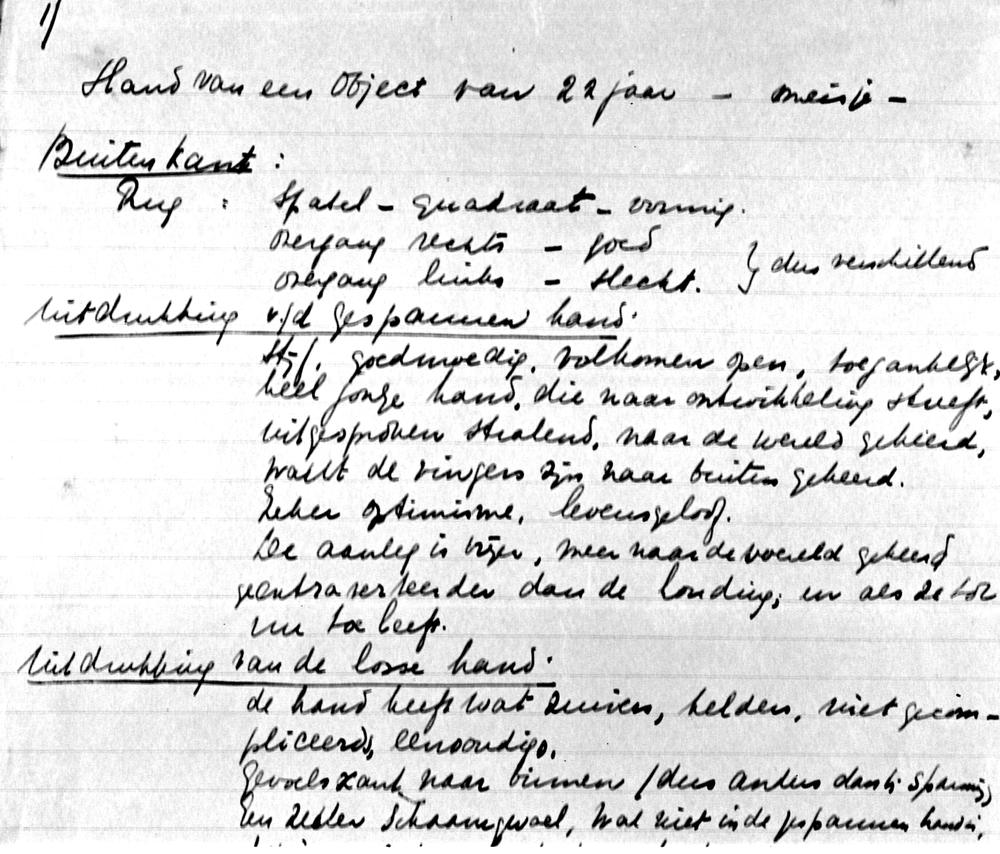 1/
Hand van een Object van 22 jaar – meisje –
Buitenkant :
Rug : Spatel – quadraat – vormig.
overgang rechts – goed
overgang links – slecht. } dus verschillend
Uitdrukking v/d gespannen hand.
Stijf, goedmoedig, volkomen open, toegankelijk,
heel jonge hand, die naar ontwikkeling streeft,
uitgesproken stralend, naar de wereld gekeerd,
want de vingers zijn naar buiten gekeerd.
Zeker optimisme, levensgeloof.
De aanleg is vrijer, meer naar de wereld gekeerd
geextraverteerder dan de houding, en als ze tot
nu toe leeft.
Uitdrukking van de losse hand.
de hand heeft wat zuivers, helders, niet gecom-
pliceerds, eenvoudigs.
Gevoelskant naar binnen (dus anders dan bij spanning)
Een zeker Schaamgevoel, wat niet in de gespannen hand is,